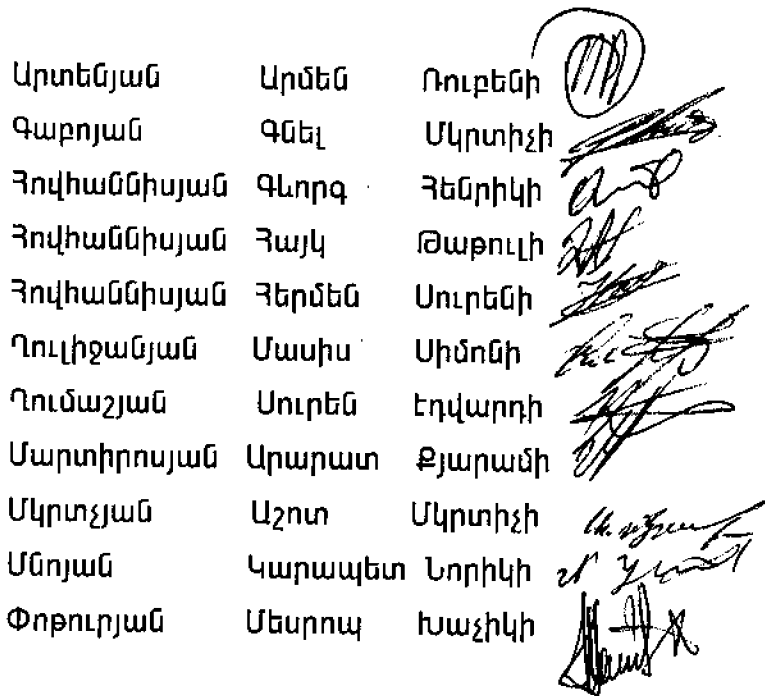 Արտենյան Արմեն Ռուբենի
Գաբոյան Գնել Մկրտիչի
Հովհաննիսյան Գևորգ Հենրիկի
Հովհաննիսյան Հայկ Թաթուլի
Հովհաննիսյան Հերմեն Սուրենի
Ղուլիջանյան Մասիս Սիմոնի
Ղումաշյան Սուրեն Էդվարդի
Մարտիրոսյան Արարատ Քյարամի
Մկրտչյան Աշոտ Մկրտիչի
Մնոյան Կարապետ Նորիկի
Փոթուրյան Մեսրոպ Խաչիկի